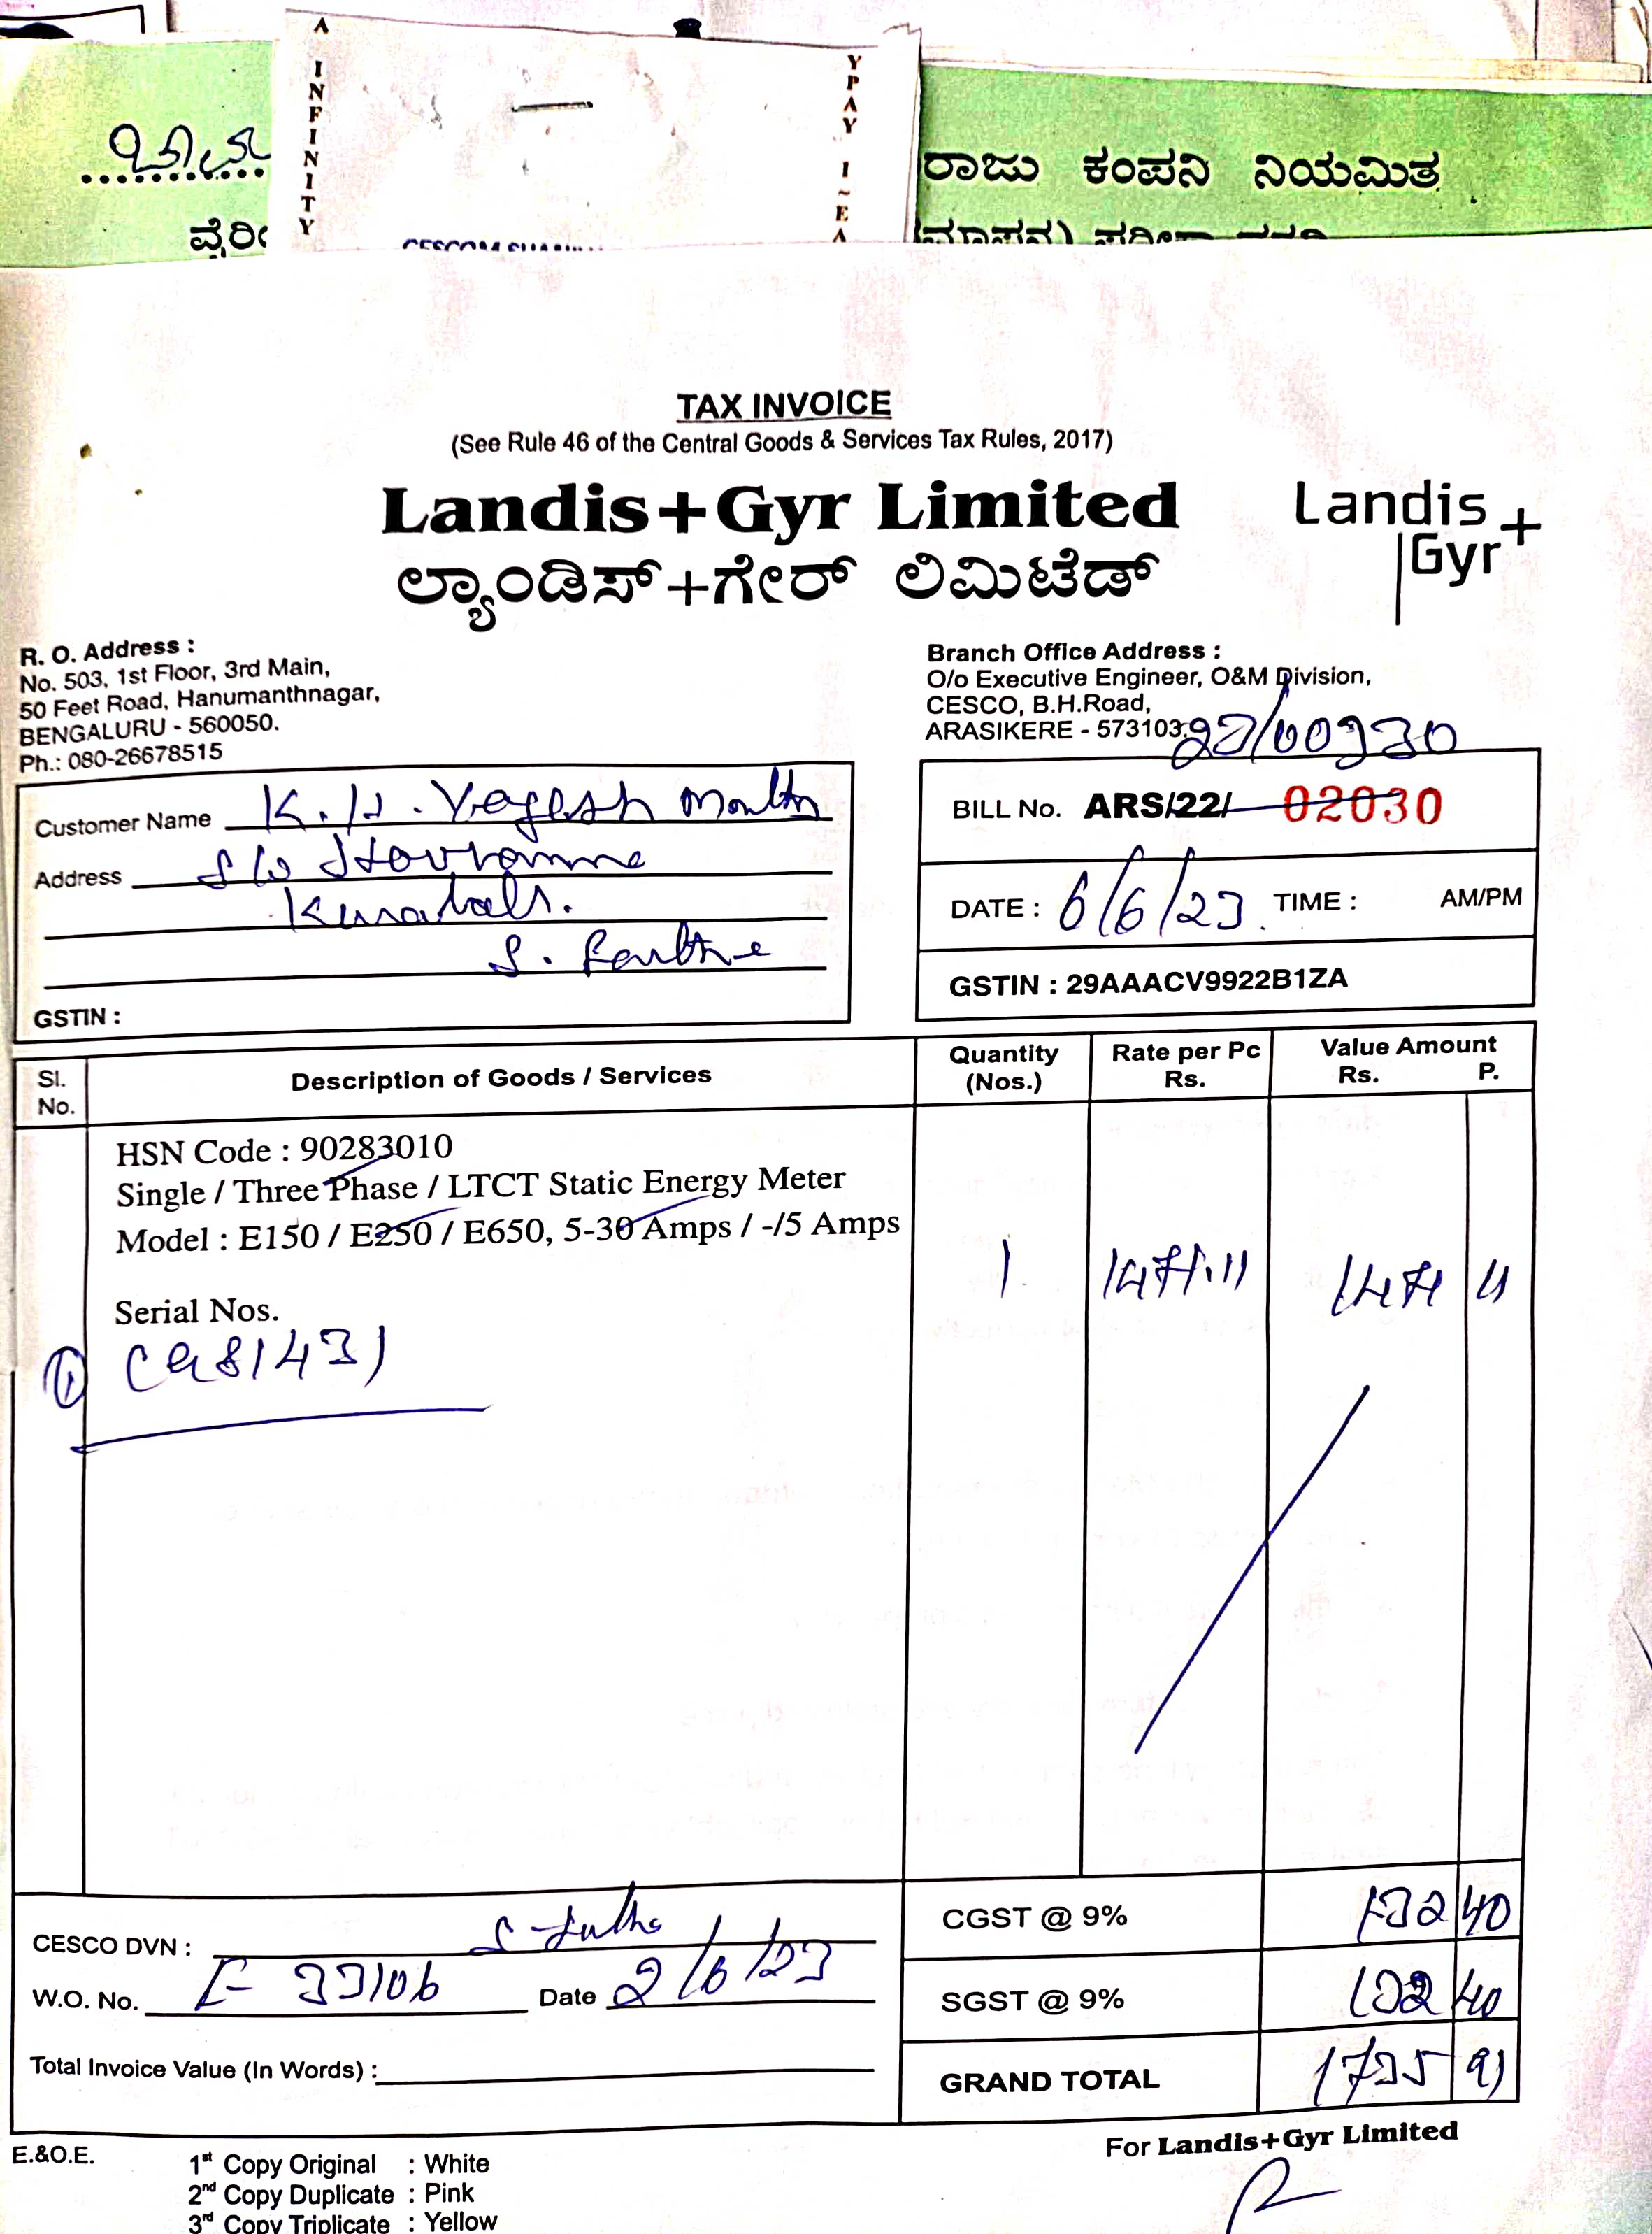 A INFINITY
YPAY 1~EA
ರಾಜು ಕಂಪನಿ ನಿಯಮಿತ
TAX INVOICE
(See Rule 46 of the Central Goods & Services Tax Rules, 2017)
Landis+Gyr Limited
ಲ್ಯಾಂಡಿಸ್+ಗೇರ್ ಲಿಮಿಟೆಡ್
Landis
Gyr+
R. O. Address :
No. 503, 1st Floor, 3rd Main,
50 Feet Road, Hanumanthnagar,
BENGALURU - 560050.
Ph.: 080-26678515
Branch Office Address :
O/o Executive Engineer, O&M Division,
CESCO, B.H.Road,
ARASIKERE - 573103.
Customer Name K. H. Yogesh
Address S/o
GSTIN :
BILL No. ARS/22/ 02030
DATE : 6/6/23. TIME : AM/PM
GSTIN : 29AAACV9922B1ZA
Sl. No. Description of Goods / Services Quantity (Nos.) Rate per Pc Rs. Value Amount Rs. P.
HSN Code : 90283010
Single / Three Phase / LTCT Static Energy Meter
Model : E150 / E250 / E650, 5-30 Amps / -/5 Amps
1 1471.11 1471 11
Serial Nos.
1
CESCO DVN :
W.O. No. 33106 Date 2/6/23
Total Invoice Value (In Words) :
CGST @ 9% 132 40
SGST @ 9% 132 40
GRAND TOTAL 1735 91
E.&O.E.
1st Copy Original : White
2nd Copy Duplicate : Pink
3rd Copy Triplicate : Yellow
For Landis+Gyr Limited